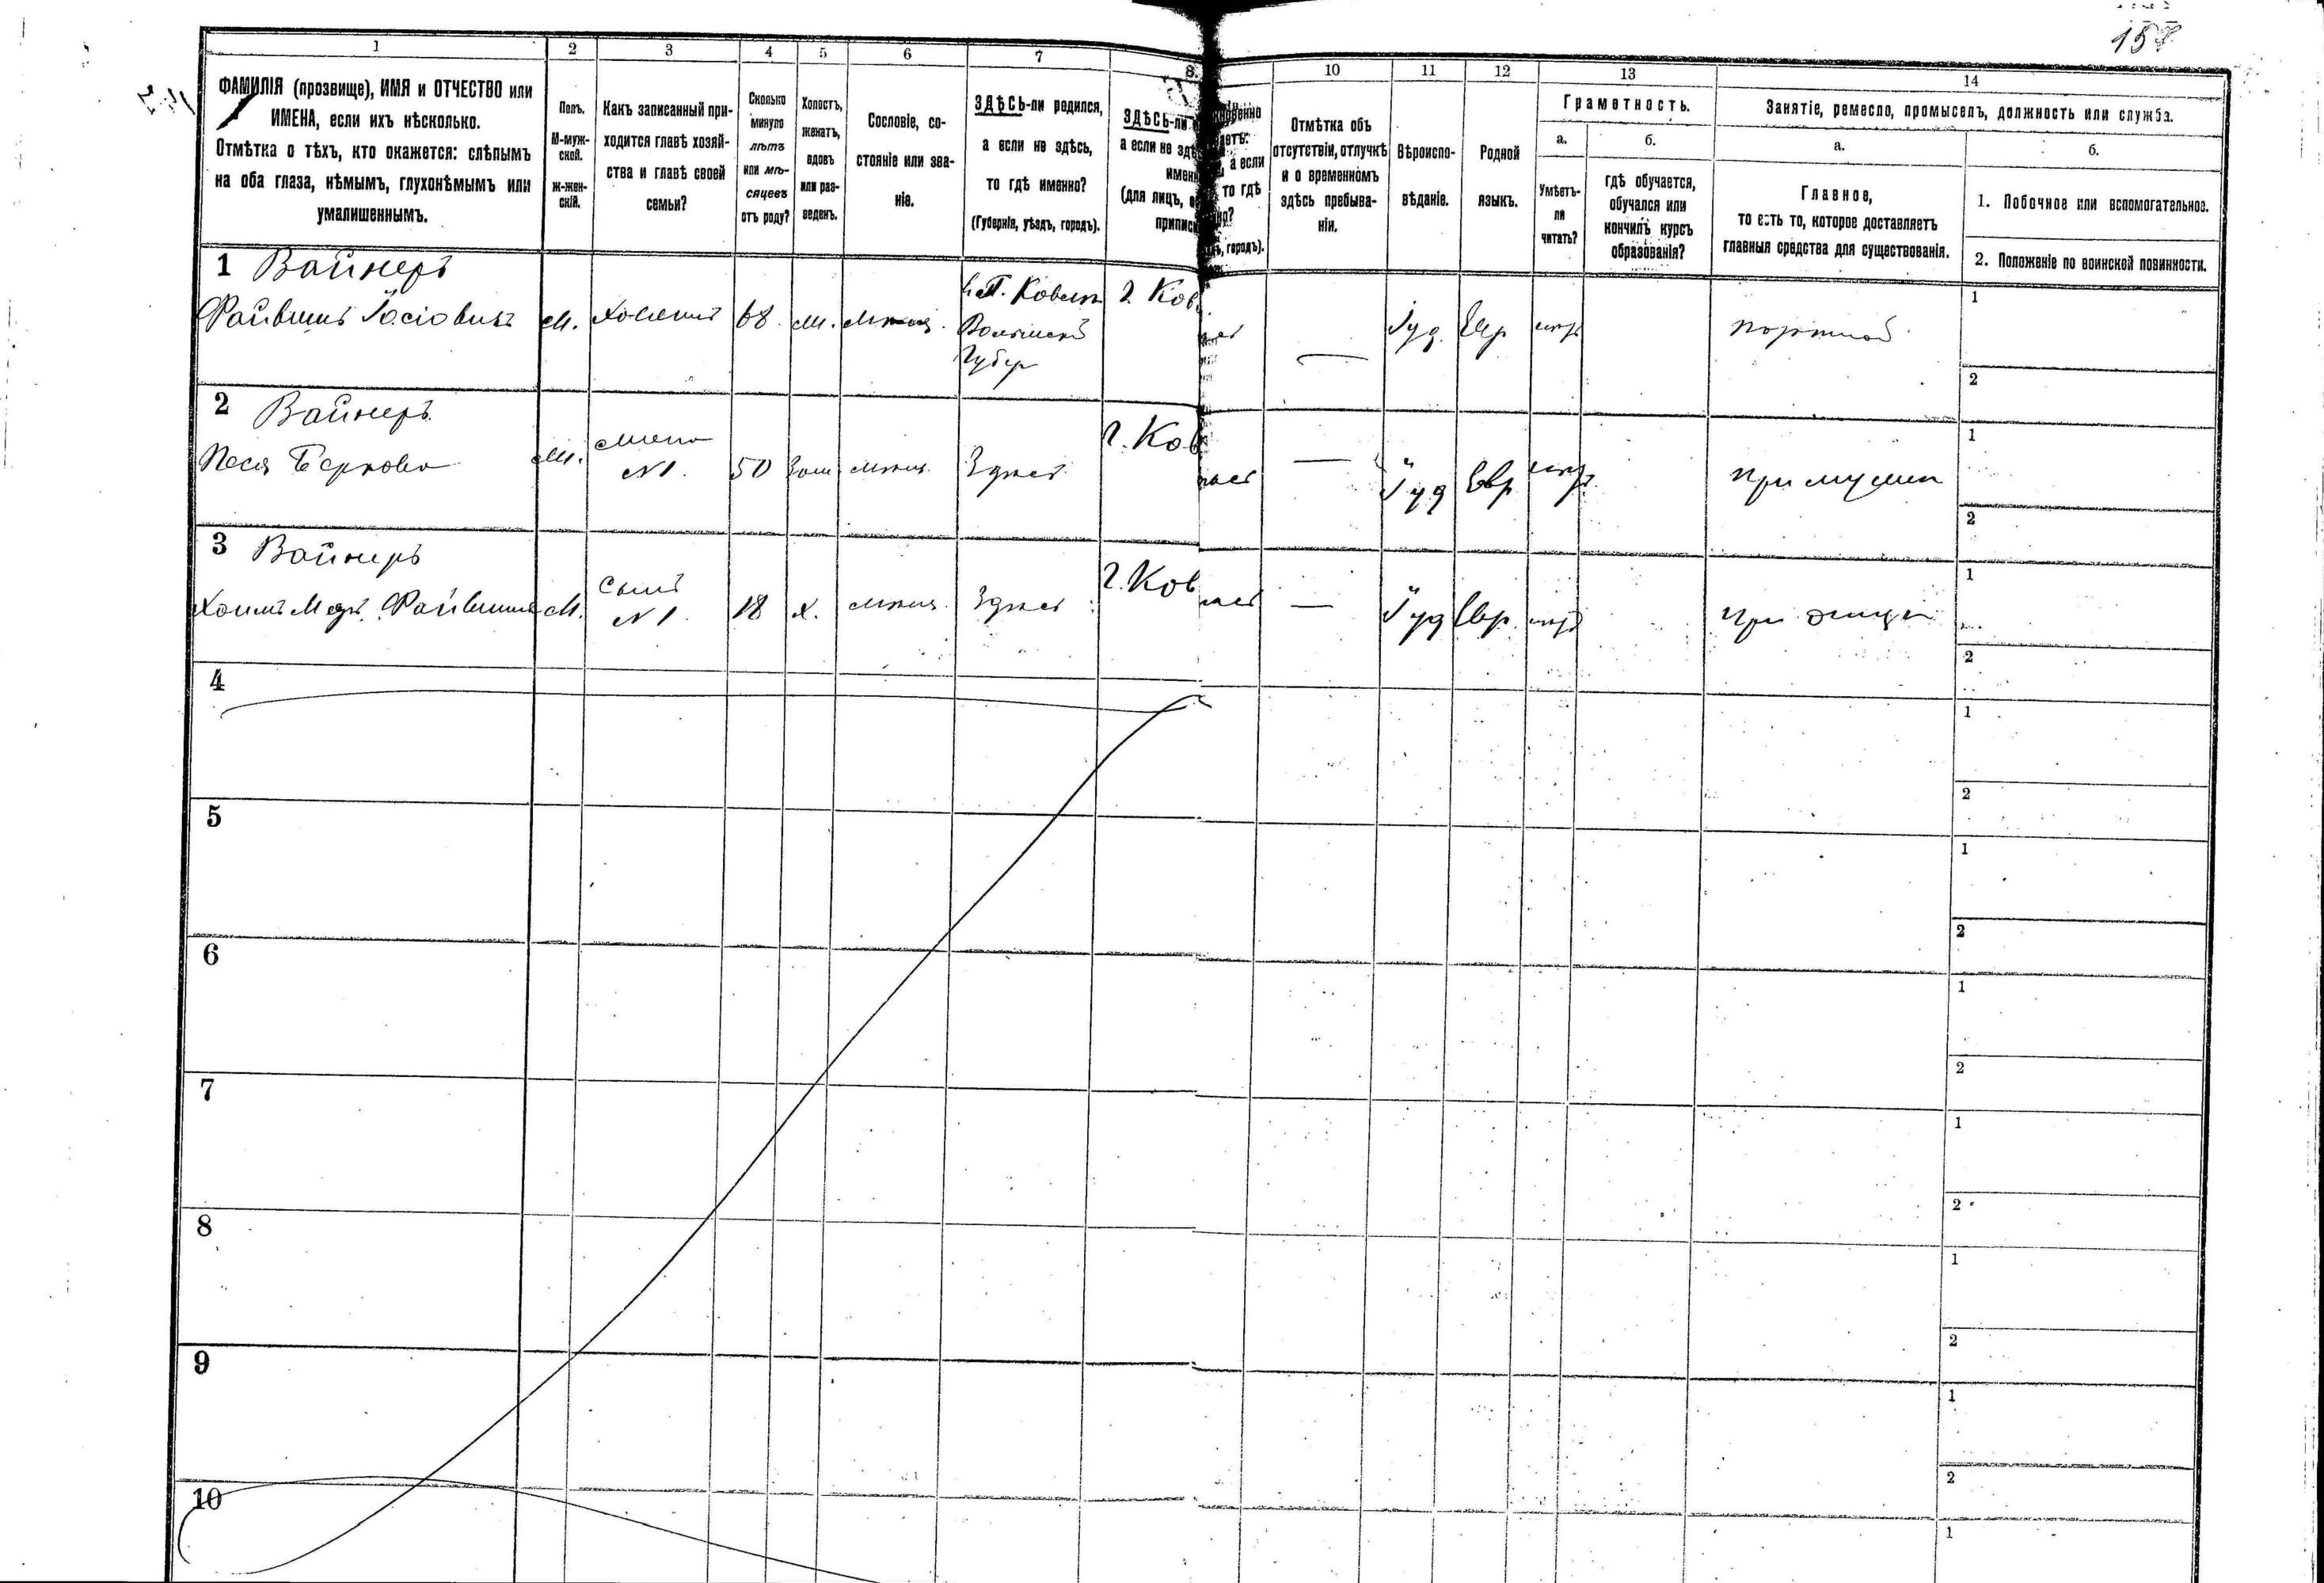 158
1 2 3 4 5 6 7 8. 10 11 12 13 14
ФАМИЛІЯ (прозвище), ИМЯ и ОТЧЕСТВО или
ИМЕНА, если ихъ нѣсколько.
Отмѣтка о тѣхъ, кто окажется: слѣпымъ
на оба глаза, нѣмымъ, глухонѣмымъ или
умалишеннымъ.
Полъ.
М-муж-
ской.
Ж-жен-
скій.
Какъ записанный при-
ходится главѣ хозяй-
ства и главѣ своей
семьи?
Сколько
минуло
лѣтъ
или мѣ-
сяцевъ
отъ роду?
Холостъ,
женатъ,
вдовъ
или раз-
веденъ.
Сословіе, со-
стояніе или зва-
ніе.
ЗДѢСЬ-ли родился,
а если не здѣсь,
то гдѣ именно?
(Губернія, уѣздъ, городъ).
ЗДѢСЬ-ли
а если не здѣ
имен
(для лицъ, о
припис
а если
то гдѣ
городъ).
Отмѣтка объ
отсутствіи, отлучкѣ
и о временномъ
здѣсь пребыва-
ніи.
Вѣроиспо-
вѣданіе.
Родной
языкъ.
Грамотность.
а.
Умѣетъ-
ли
читать?
б.
гдѣ обучается,
обучался или
кончилъ курсъ
образованія?
Занятіе, ремесло, промыселъ, должность или служба.
а.
Главное,
то есть то, которое доставляетъ
главныя средства для существованія.
б.
1. Побочное или вспомогательное.
2. Положеніе по воинской повинности.
1 Вайнеръ
М. 68 Ковель 2. Ков Іуд. Евр портной 1
Волынской
Губер
2
2 Вайнеръ
Песя Беркова М. жена 50 зам. мѣщ. Здѣсь г. Ков — Іуд Евр при мужѣ 1
№1.
2
3 Вайнеръ
М. Сынъ 18 х. мѣщ. Здѣсь г. Ков — Іуд Евр. при отцѣ 1
№1.
2
4
1
2
5
1
2
6
1
2
7
1
2
8
1
2
9
1
2
10
1